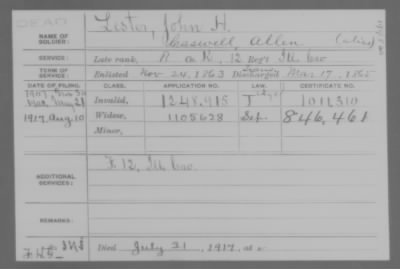 DEAD
NAME OF SOLDIER: Lester, John H.
Caswell, Allen (alias)
SERVICE: Late rank, K, 12 Reg't Ill. Cav
TERM OF SERVICE: Enlisted Nov 24, 1863 Discharged Mar 17, 1865
DATE OF FILING. CLASS. APPLICATION NO. LAW. CERTIFICATE NO.
Invalid, 1248,915 1011,310
1917 Aug 10 Widow, 1105628 Sep. 846,461
Minor,
ADDITIONAL SERVICES: F 12, Ill. Cav.
REMARKS:
Died July 31, 1917, at